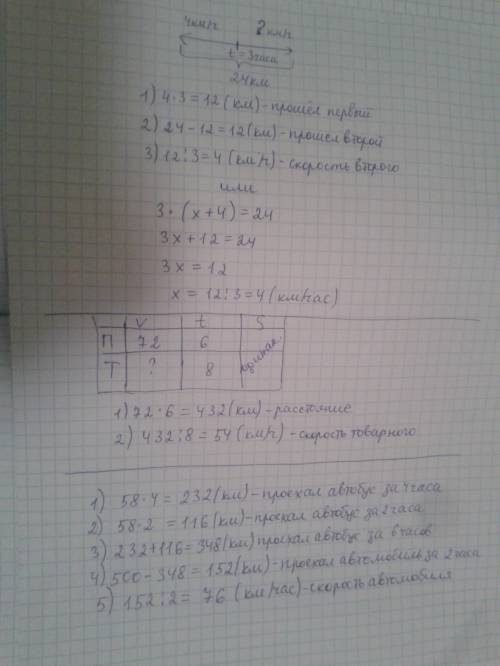 4км/ч ? км/ч
t = 3 часа
24 км
1) 4·3 = 12 (км) - прошёл первый
2) 24 - 12 = 12 (км) - прошел второй
3) 12 : 3 = 4 (км/ч) - скорость второго
или
3 · (x + 4) = 24
3x + 12 = 24
3x = 12
x = 12 : 3 = 4 (км/час)
V t S
П 72 6 одинак.
Т ? 8
1) 72 · 6 = 432 (км) - расстояние
2) 432 : 8 = 54 (км/ч) - скорость товарного
1) 58 · 4 = 232 (км) - проехал автобус за 4 часа
2) 58 · 2 = 116 (км) - проехал автобус за 2 часа
3) 232 + 116 = 348 (км) проехал автобус за 6 часов
4) 500 - 348 = 152 (км) - проехал автомобиль за 2 часа
5) 152 : 2 = 76 (км/час) - скорость автомобиля